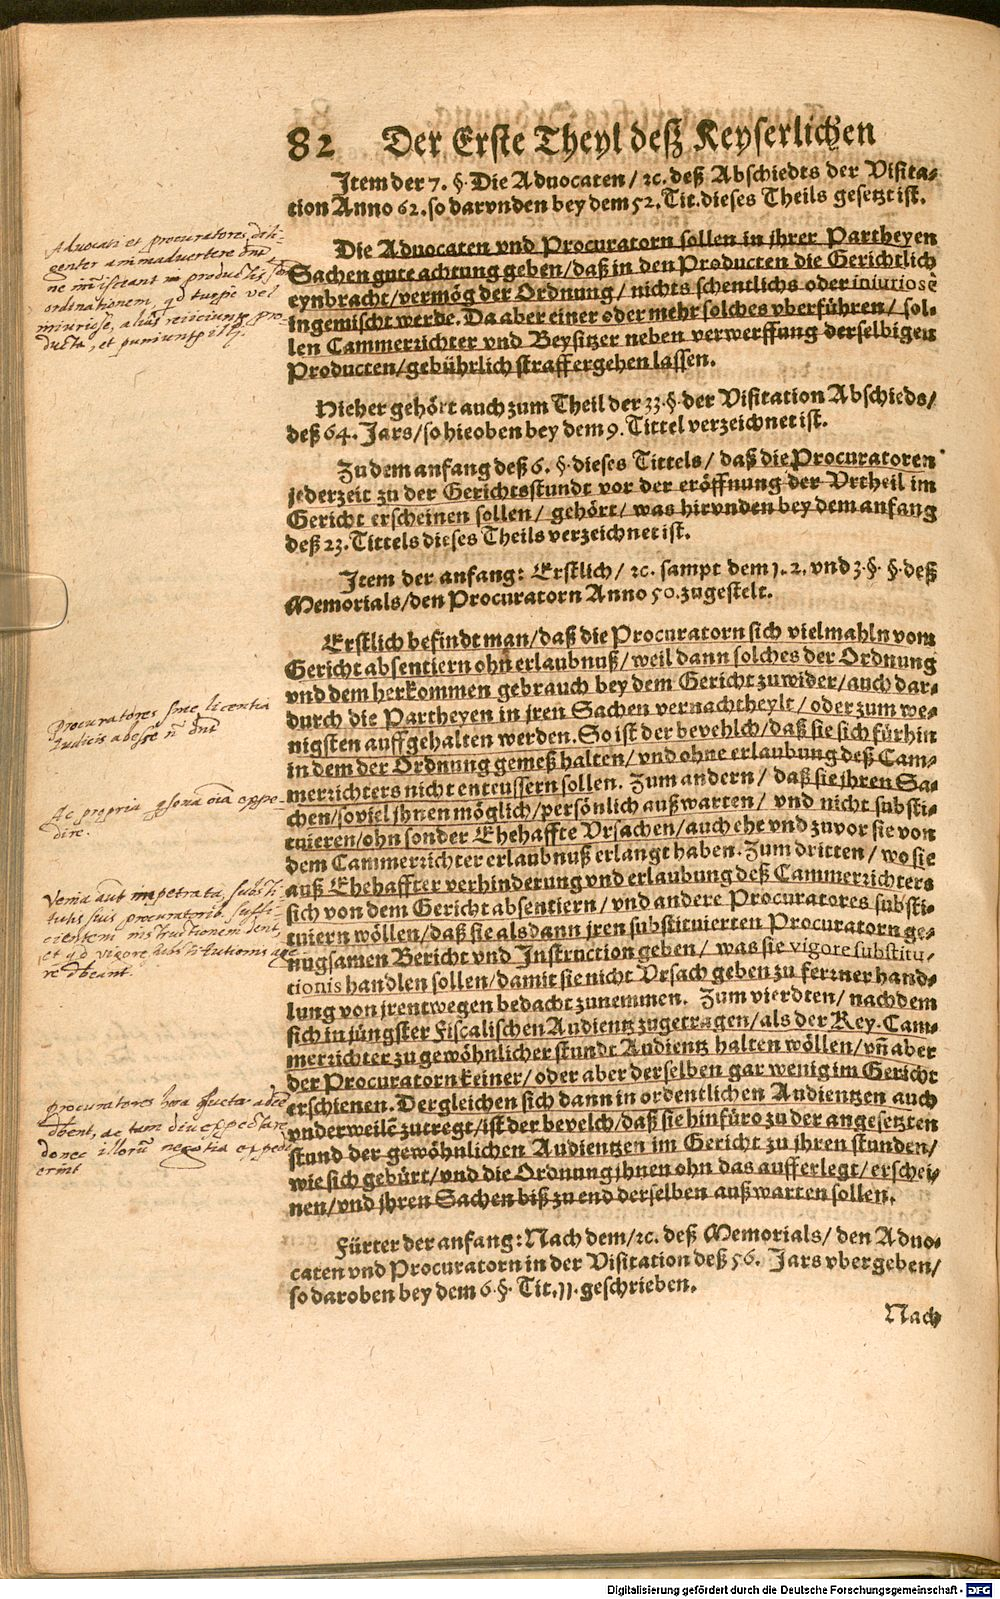 82 Der Erste Theyl deß Keyserlichen
Item der 7. §. Die Aduocaten / ꝛc. deß Abschiedts der Visita-
tion Anno 62. so darvnden bey dem 52. Tit. dieses Theils gesetzt ist.
Die Aduocaten vnd Procuratorn sollen in jhrer Partheyen
Sachen gute achtung geben / daß in den Producten die Gerichtlich
eynbracht / vermög der Ordnung / nichts schentlichs oder iniuriosè
ingemischt werde. Da aber einer oder mehr solches vberführen / sol-
len Cammerrichter vnd Beysitzer neben verwerffung derselbigen
Producten / gebührlich straff ergehen lassen.
Hieher gehört auch zum Theil der 33. §. der Visitation Abschieds /
deß 64. Jars / so hieoben bey dem 9. Tittel verzeichnet ist.
Zu dem anfang deß 6. §. dieses Tittels / daß die Procuratoren
jederzeit zu der Gerichtsstundt vor der eröffnung der Vrtheil im
Gericht erscheinen sollen / gehört / was hirvnden bey dem anfang
deß 23. Tittels dieses Theils verzeichnet ist.
Item der anfang: Erstlich / ꝛc. sampt dem 1. 2. vnd 3. §. §. deß
Memorials / den Procuratorn Anno 50. zugestelt.
Erstlich befindt man / daß die Procuratorn sich vielmahln vom
Gericht absentiern ohn erlaubnuß / weil dann solches der Ordnung
vnd dem herkommen gebrauch bey dem Gericht zuwider / auch dar-
durch die Partheyen in jren Sachen vernachtheylt / oder zum we-
nigsten auffgehalten werden. So ist der bevehlch / daß sie sich fürhin
in dem der Ordnung gemeß halten / vnd ohne erlaubung deß Cam-
merrichters nicht enteussern sollen. Zum andern / daß sie jhren Sa-
chen / soviel jhnen möglich / persönlich außwarten / vnd nicht substi-
tuieren / ohn sonder Ehehaffte Vrsachen / auch ehe vnd zuvor sie von
dem Cammerrichter erlaubnuß erlangt haben. Zum dritten / wo sie
auß Ehehaffter verhinderung vnd erlaubung deß Cammerrichters
sich von dem Gericht absentiern / vnd andere Procuratores substi-
tuiern wöllen / daß sie alsdann jren substituierten Procuratorn ge-
nugsamen Bericht vnd Instruction geben / was sie vigore substitu-
tionis handlen sollen / damit sie nicht Vrsach geben zu ferrner hand-
lung von jrentwegen bedacht zunemmen. Zum vierdten / nach dem
sich in jüngster Fiscalischen Audientz zugetragen / als der Key. Cam-
merrichter zu gewöhnlicher stundt Audientz halten wöllen / vn̄ aber
der Procuratorn keiner / oder aber derselben gar wenig im Gericht
erschienen. Dergleichen sich dann in ordentlichen Audientzen auch
vnderweilē zutregt / ist der bevelch / daß sie hinfüro zu der angesetzten
stund der gewöhnlichen Audientzen im Gericht zu jhren stunden /
wie sich gebürt / vnd die Ordnung jhnen ohn das aufferlegt / erschei-
nen / vnd jhren Sachen biß zu end derselben außwarten sollen.
Fürter der anfang: Nach dem / ꝛc. deß Memorials / den Aduo-
caten vnd Procuratorn in der Visitation deß 56. Jars vbergeben /
so daroben bey dem 6. §. Tit. 11. geschrieben.
Nach
Advocati et procuratores dili-
genter animadvertere dn̄t
ne misceant in productis
ordinationem, turpe vel
iniuriose, alias reiiciunt pro-
ducta, et puniunt
Procuratores sine licentia
Iudicis abesse n̄ dn̄t
Ac propria oīa expe-
dire.
Venia aut impetrata, substi-
tutis suis procuratorib. suffi-
cientem instructionem dent,
et vigore substitutionis age-
re
procuratores hora
ac tam diu expectare
donec illorū negotia expedi
erint
Digitalisierung gefördert durch die Deutsche Forschungsgemeinschaft - DFG